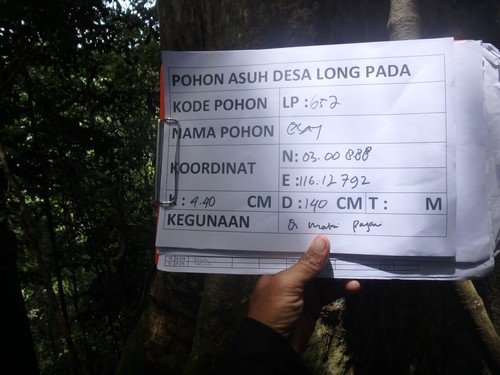 POHON ASUH DESA LONG PADA
KODE POHON LP : 652
NAMA POHON
KOORDINAT N : 03.00 888
E : 116.12792
: 4.40 CM D : 140 CM T : M
KEGUNAAN